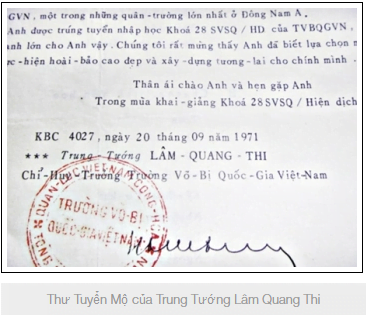 GVN, một trong những quân-trường lớn nhất ở Đông Nam A.
Anh được trúng tuyển nhập học Khoá 28 SVSQ / HD của TVBQGVN,
anh lớn cho Anh vậy. Chúng tôi rất mừng thấy Anh đã biết lựa chọn
ực-hiện hoài-bảo cao đẹp và xây-dựng tương-lai cho chính mình.
Thân ái chào Anh và hẹn gặp Anh
Trong mùa khai-giảng Khoá 28 SVSQ / Hiện dịch
KBC 4027, ngày 20 tháng 09 năm 1971
*** Trung-Tướng LÂM-QUANG-THI
Chỉ-Huy-Trưởng Trường Võ-Bị Quốc-Gia Việt-Nam
QUÂN-LỰC VIỆT-NAM CỘNG-HÒA
TRƯỜNG VÕ-BỊ
QUỐC-GIA VIỆT-NAM
Thư Tuyển Mộ của Trung Tướng Lâm Quang Thi